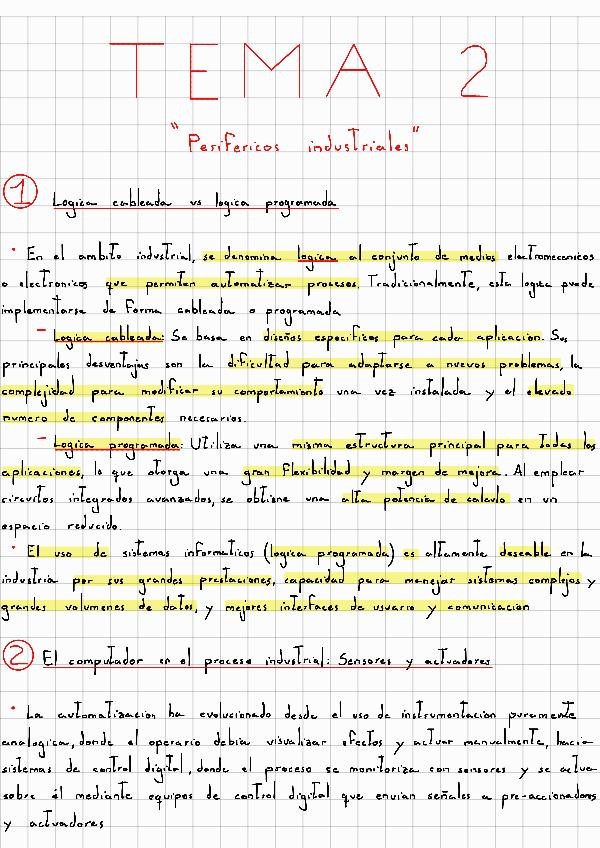 TEMA 2
"Perifericos industriales"
1 Logica cableada vs logica programada
· En el ambito industrial, se denomina logica al conjunto de medios electromecanicos
o electronicos que permiten automatizar procesos. Tradicionalmente, esta logica puede
implementarse de forma cableada o programada
- Logica cableada: Se basa en diseños especificos para cada aplicación. Sus
principales desventajas son la dificultad para adaptarse a nuevos problemas, la
complejidad para modificar su comportamiento una vez instalada y el elevado
numero de componentes necesarios.
- Logica programada: Utiliza una misma estructura principal para todas las
aplicaciones, lo que otorga una gran flexibilidad y margen de mejora. Al emplear
circuitos integrados avanzados, se obtiene una alta potencia de calculo en un
espacio reducido.
· El uso de sistemas informaticos (logica programada) es altamente deseable en la
industria por sus grandes prestaciones, capacidad para manejar sistemas complejos y
grandes volumenes de datos, y mejores interfaces de usuario y comunicación
2 El computador en el proceso industrial: Sensores y actuadores
· La automatización ha evolucionado desde el uso de instrumentación puramente
analogica, donde el operario debia visualizar efectos y actuar manualmente, hacia
sistemas de control digital, donde el proceso se monitoriza con sensores y se actua
sobre él mediante equipos de control digital que envian señales a pre-accionadores
y actuadores